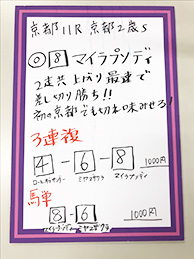 京都11R 京都2歳S
◎8 マイラプソディ
2走共上がり最速で
差し切り勝ち!!
初の京都でも切れ味みせる!
3連複
4-6-8 1000円
ロールオブサンダー ミヤマザクラ マイラプソディ
馬単
8-6 1000円
マイラプソディ ミヤマザクラ